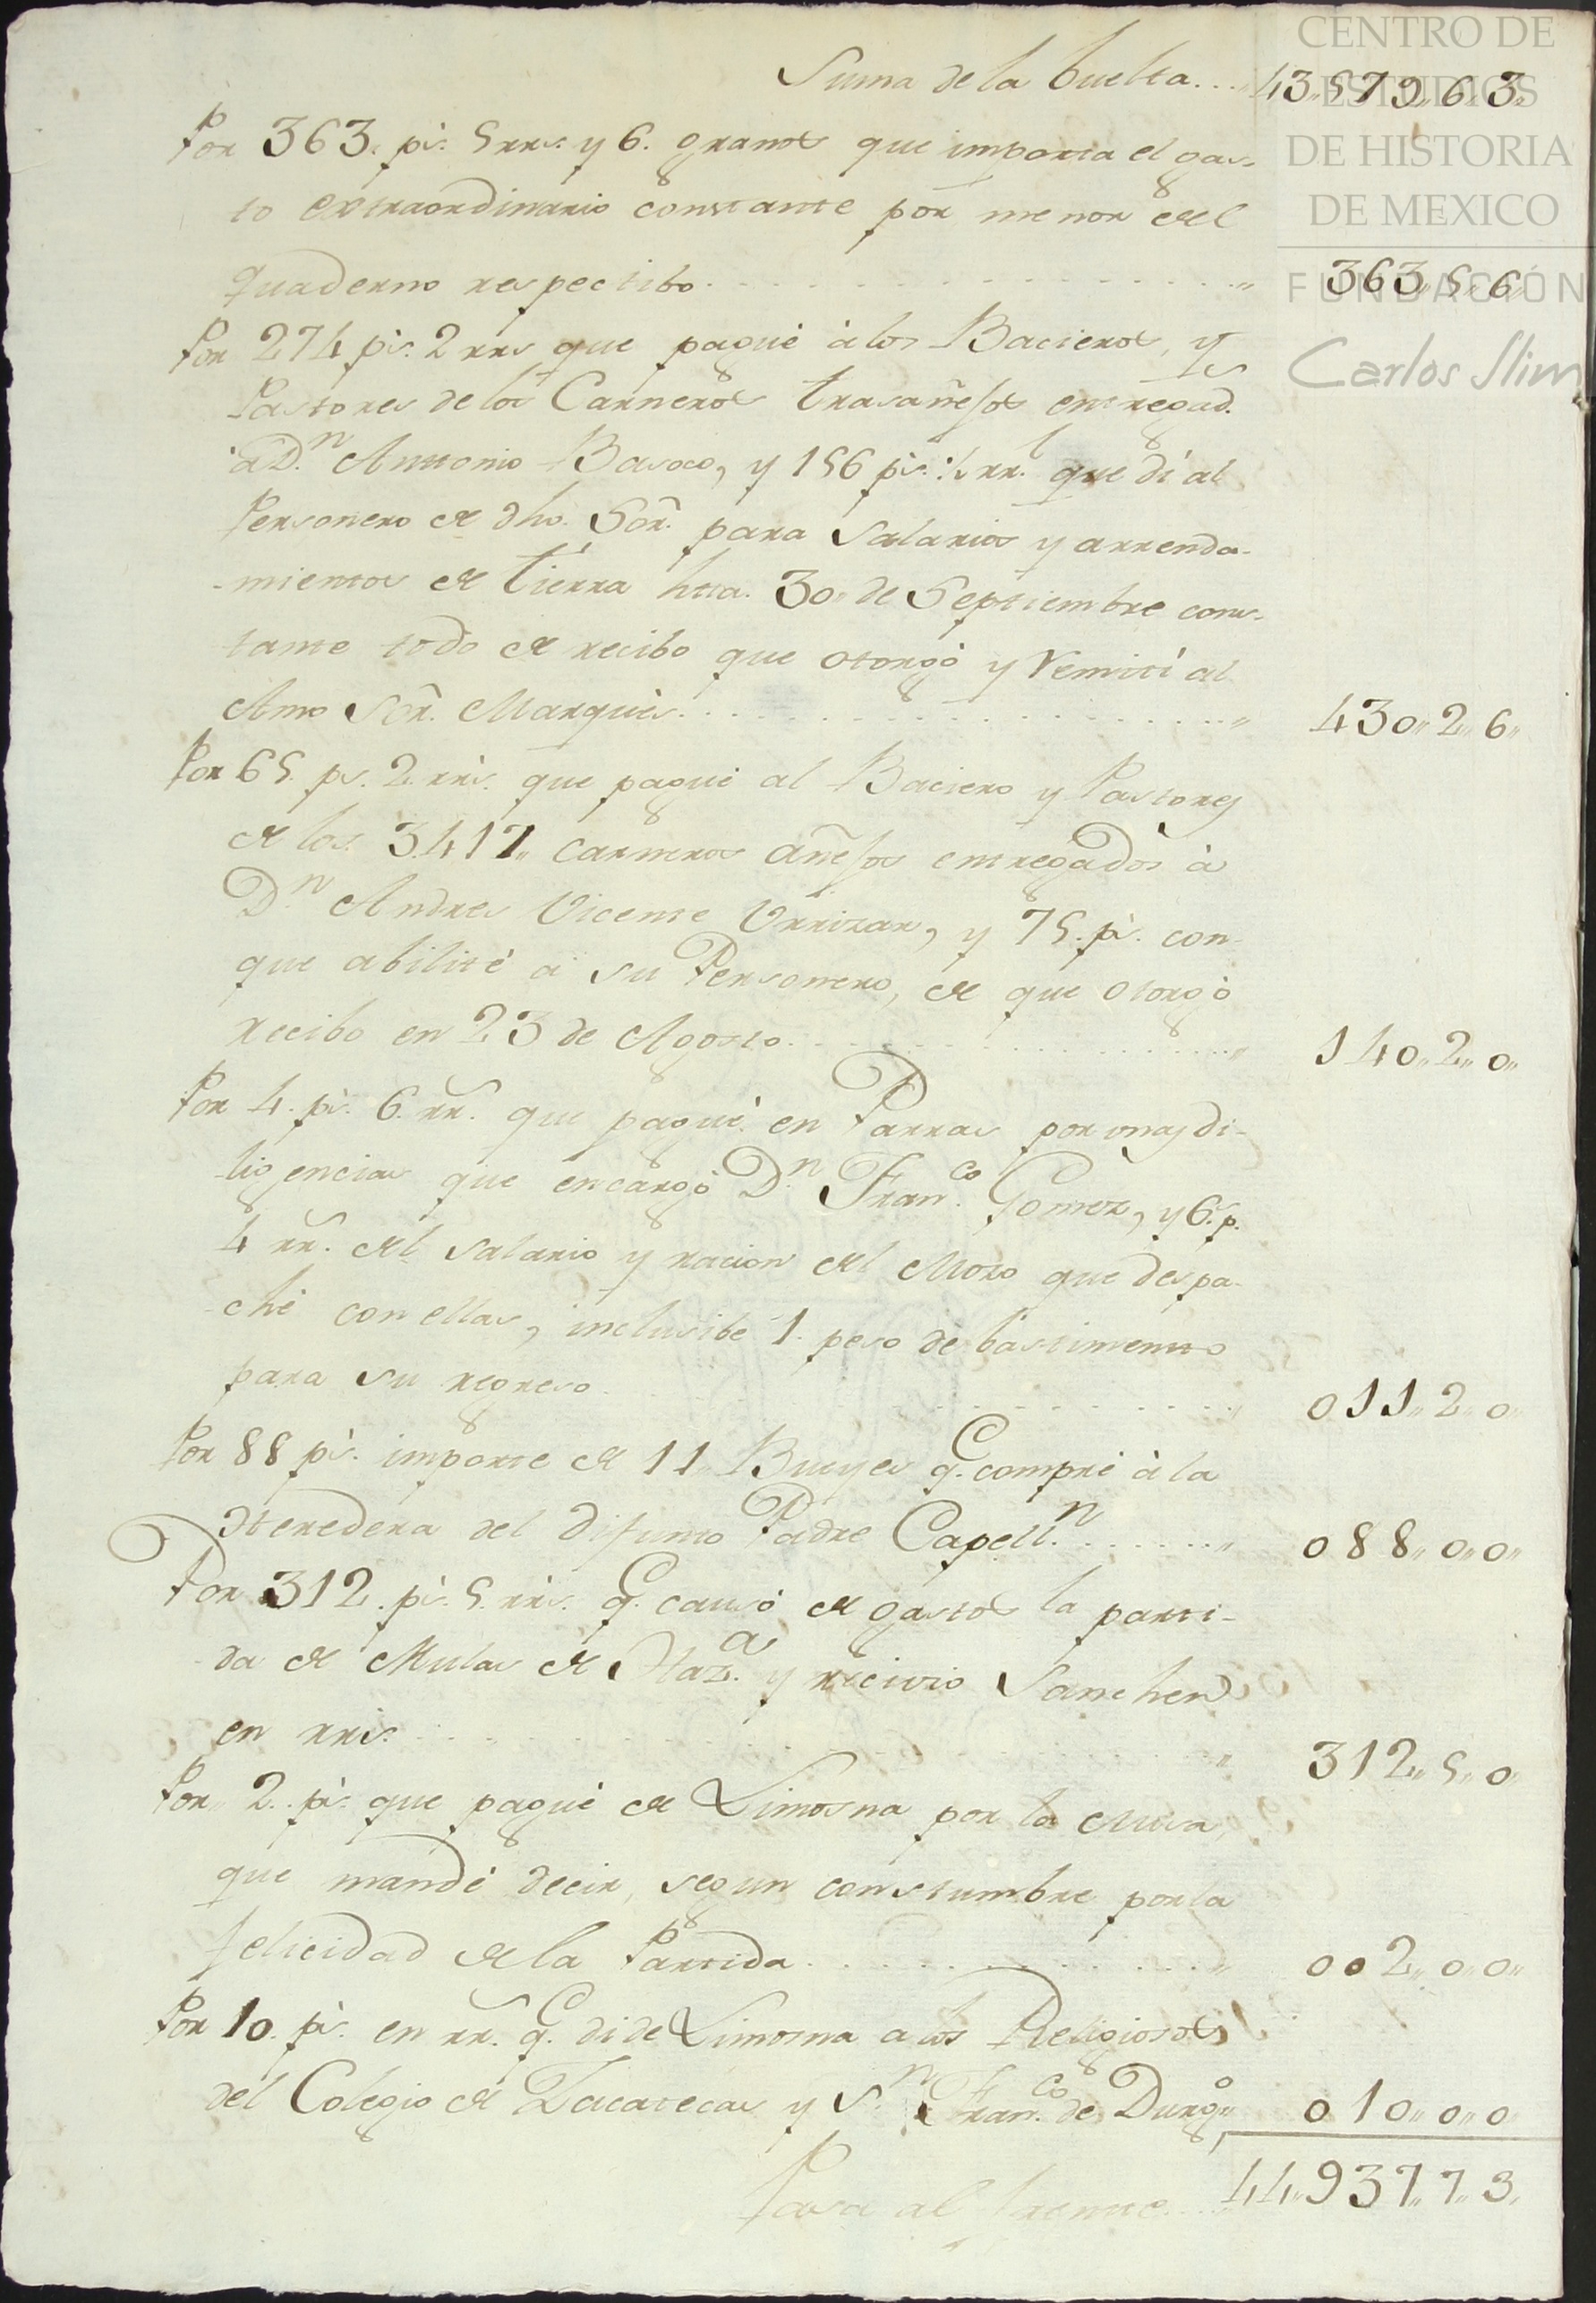 CENTRO DE
ESTUDIOS
DE HISTORIA
DE MEXICO
FUNDACIÓN
Carlos Slim
Suma de la buelta... 43,,579,,6,,3,,
Por 363. ps. 5 rrs. y 6. granos que importa el gas-
to extraordinario constante por menor del
quaderno respectibo. 363,,5,,6,,
Por 274 ps. 2 rrs que pagué à los Bacieros, y
Pastores de los Carneros trasañejos entregads.
à Dn. Antonio Basoco, y 156 ps. ½ rrl. que di al
Personero de dho. Sor. para Salarios y arrenda-
-mientos de tierra hta. 30,, de Septiembre cons-
tante todo de recibo que otorgó y remití al
Amo Sor. Marqués. 430,,2,,6,,
Por 65. ps. 2. rrs. que pagué al Baciero y Pastores
de los 3417,, carneros añejos entregados à
Dn. Andres Vicente Urrizar, y 75. ps. con-
que abilité a su Personero, de que otorgó
recibo en 23 de Agosto. 140,,2,,0,,
Por 4. ps. 6. rr. que pagué en Parras por unas di-
-ligencias que encargó Dn. Franco. Gomez, y 6. ps.
4 rr. del salario y racion del Mozo que despa-
-ché con ellas, inclusibe 1. peso de bastimento
para su regreso. 011,,2,,0,,
Por 88 ps. importe de 11,, Bueyes q. compré à la
Heredera del difunto Padre Capelln. 088,,0,,0,,
Por 312. ps. 5. rrs. q. causó de gastos la parti-
da de Mulas de Haza. y recivio Sanchez
en rrs. 312,,5,,0,,
Por 2. ps. que pagué de Limosna por la Misa,
que mandé decir, segun constumbre por la
felicidad de la Partida. 002,,0,,0,,
Por 10. ps. en rr. q. di de Limosna a los Religiosos
del Colegio de Zacatecas y Sn. Franco. de Durgo,, 010,,0,,0
Pasa al frente... 44,,937,,7,,3,,